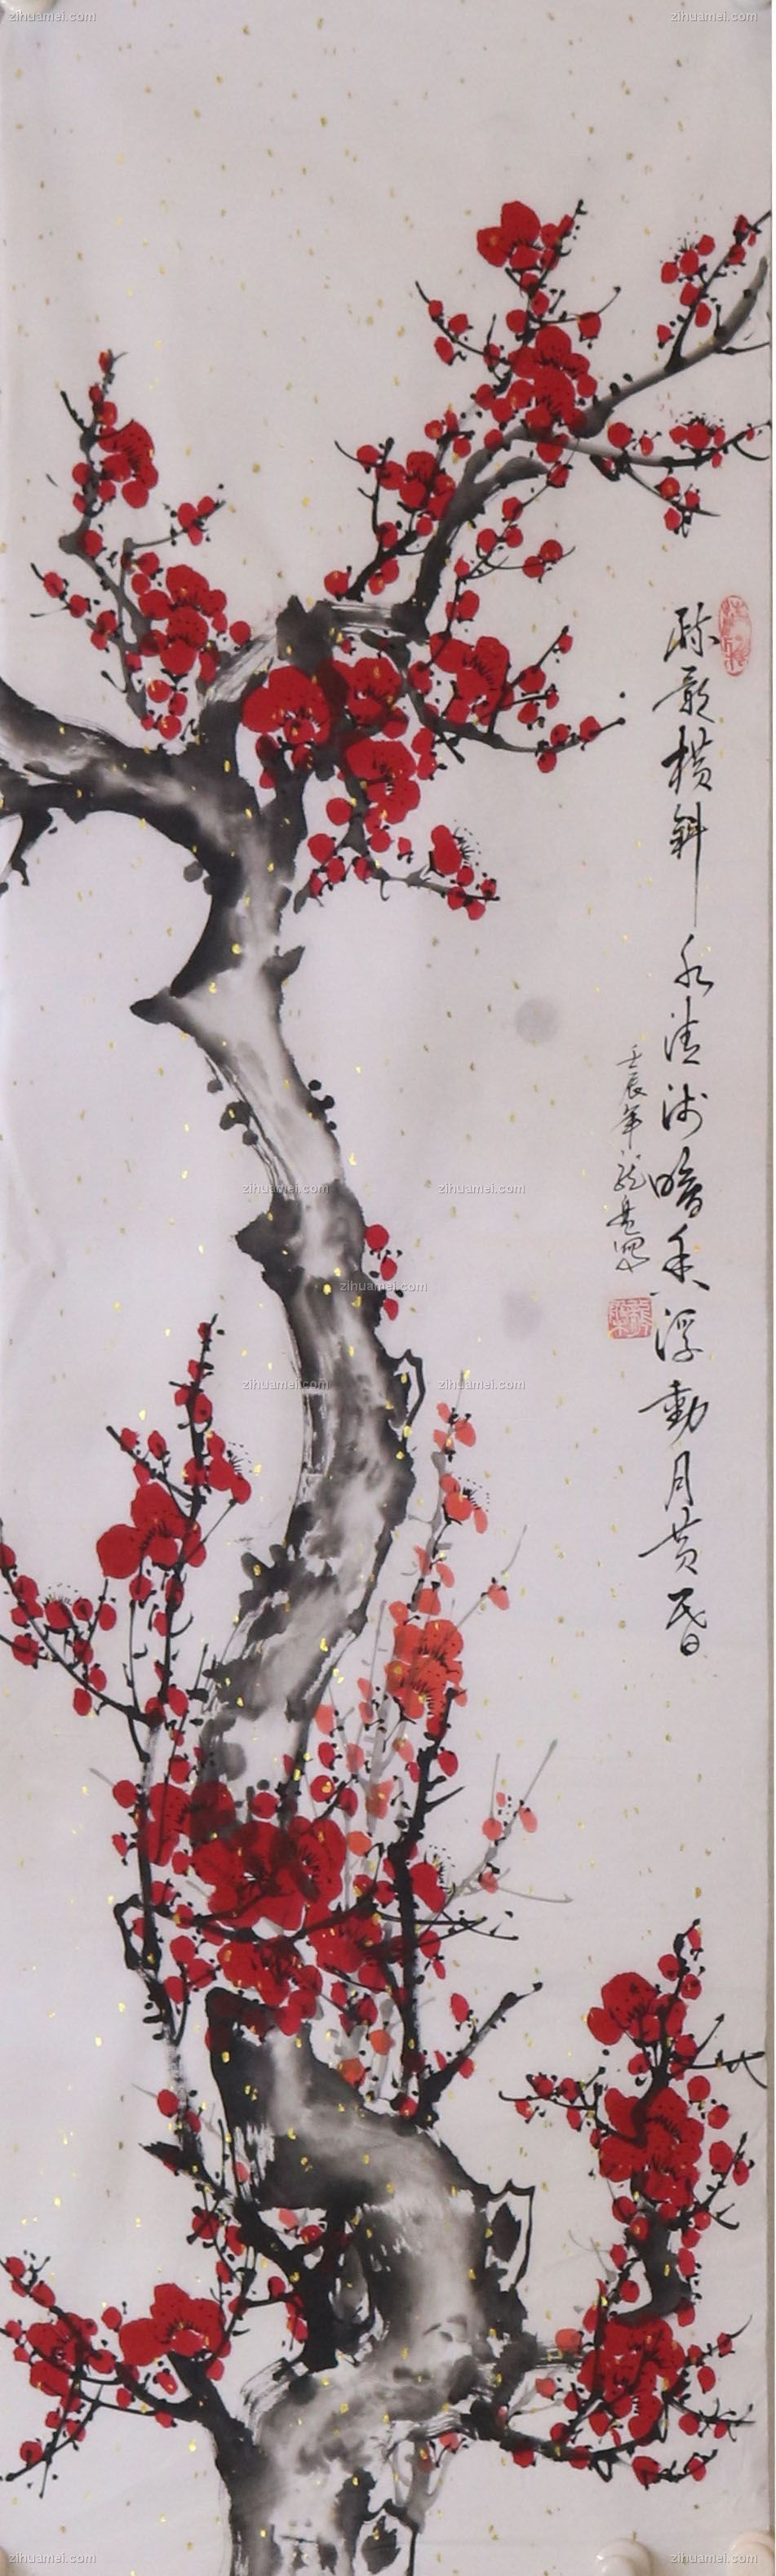 zihuamei.com
zihuamei.com
疎影横斜水清浅暗香浮動月黄昏
壬辰年
zihuamei.com
zihuamei.com
zihuamei.com
zihuamei.com
zihuamei.com
zihuamei.com
zihuamei.com